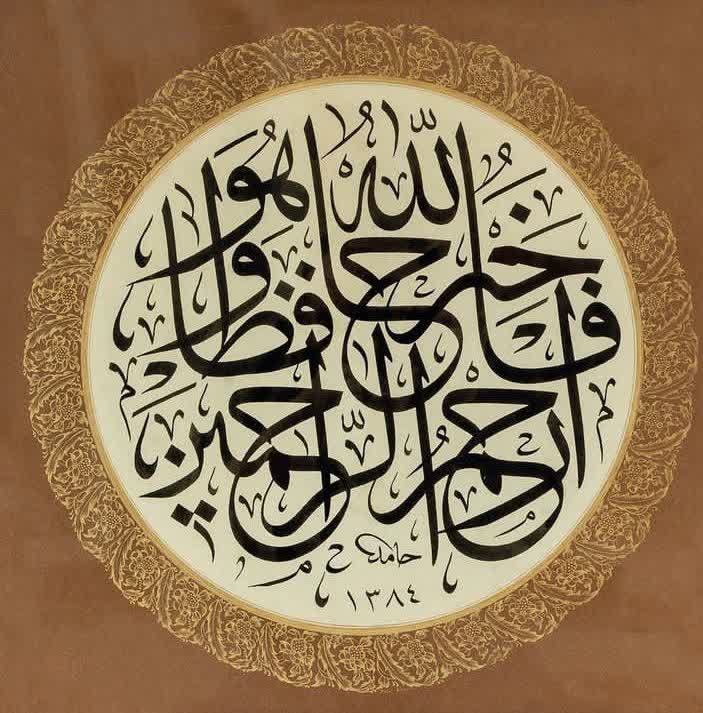 فالله خير حافظا وهو
أرحم الراحمين
حامد
١٣٨٤